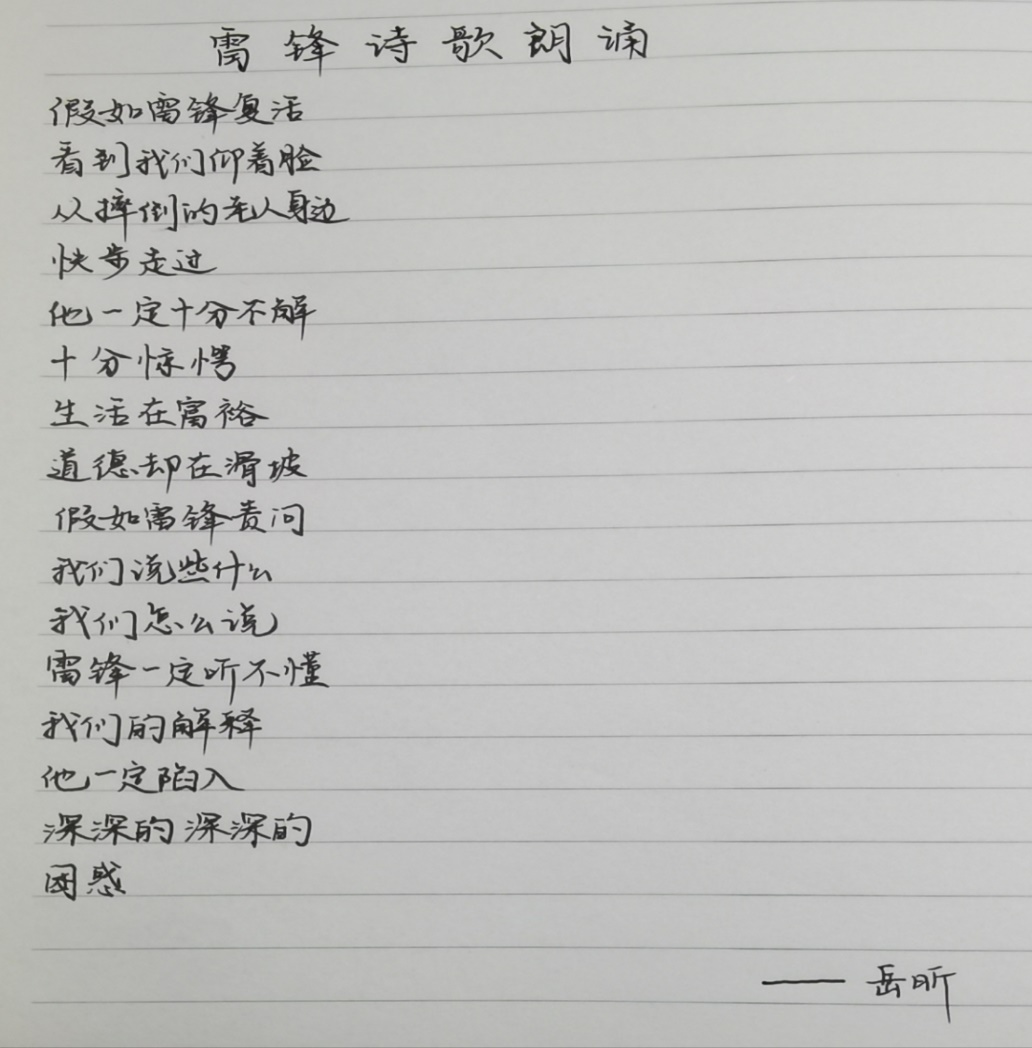 雷锋诗歌朗诵
假如雷锋复活
看到我们仰着脸
从摔倒的老人身边
快步走过
他一定十分不解
十分惊愕
生活在富裕
道德却在滑坡
假如雷锋责问
我们说些什么
我们怎么说
雷锋一定听不懂
我们的解释
他一定陷入
深深的深深的
困惑
—— 岳昕